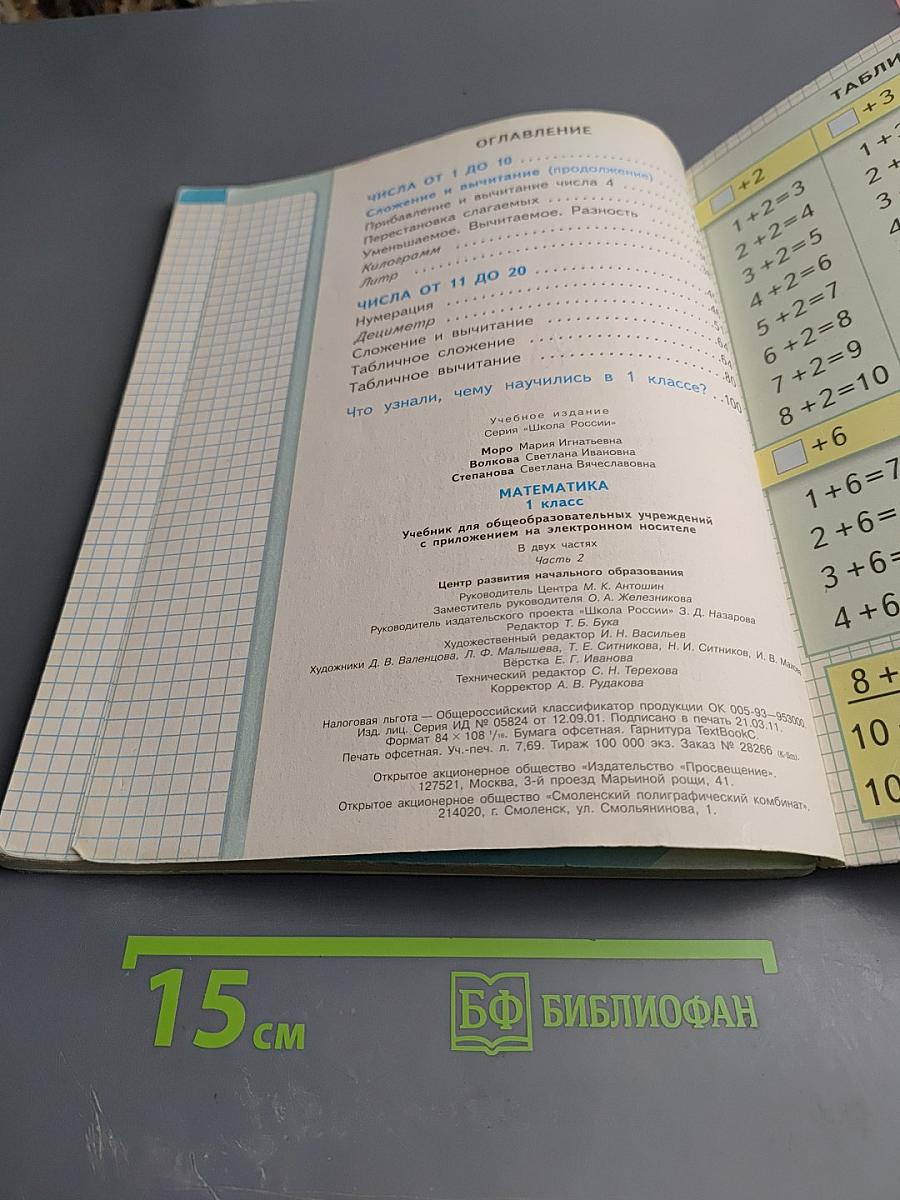 ОГЛАВЛЕНИЕ
ЧИСЛА ОТ 1 ДО 10
Сложение и вычитание (продолжение)
Прибавление и вычитание числа 4
Перестановка слагаемых
Уменьшаемое. Вычитаемое. Разность
Килограмм
Литр
ЧИСЛА ОТ 11 ДО 20
Нумерация
Дециметр
Сложение и вычитание
Табличное сложение
Табличное вычитание 80
Что узнали, чему научились в 1 классе? 100
Учебное издание
Серия «Школа России»
Моро Мария Игнатьевна
Волкова Светлана Ивановна
Степанова Светлана Вячеславовна
МАТЕМАТИКА
1 класс
Учебник для общеобразовательных учреждений
с приложением на электронном носителе
В двух частях
Часть 2
Центр развития начального образования
Руководитель Центра М. К. Антошин
Заместитель руководителя О. А. Железникова
Руководитель издательского проекта «Школа России» З. Д. Назарова
Редактор Т. Б. Бука
Художественный редактор И. Н. Васильев
Художники Д. В. Валенцова, Л. Ф. Малышева, Т. Е. Ситникова, Н. И. Ситников, И. В.
Вёрстка Е. Г. Иванова
Технический редактор С. Н. Терехова
Корректор А. В. Рудакова
Налоговая льгота — Общероссийский классификатор продукции ОК 005-93—953000.
Изд. лиц. Серия ИД № 05824 от 12.09.01. Подписано в печать 21.03.11.
Формат 84 × 108 1/16. Бумага офсетная. Гарнитура TextBookC.
Печать офсетная. Уч.-печ. л. 7,69. Тираж 100 000 экз. Заказ № 28266
Открытое акционерное общество «Издательство «Просвещение».
127521, Москва, 3-й проезд Марьиной рощи, 41.
Открытое акционерное общество «Смоленский полиграфический комбинат».
214020, г. Смоленск, ул. Смольянинова, 1.
ТАБЛИ
+2
1+2=3
2+2=4
3+2=5
4+2=6
5+2=7
6+2=8
7+2=9
8+2=10
+3
1+
2+
3
4
+6
1+6=7
2+6=
3+6=
4+6
8+
10
10
15 см
БФ БИБЛИОФАН